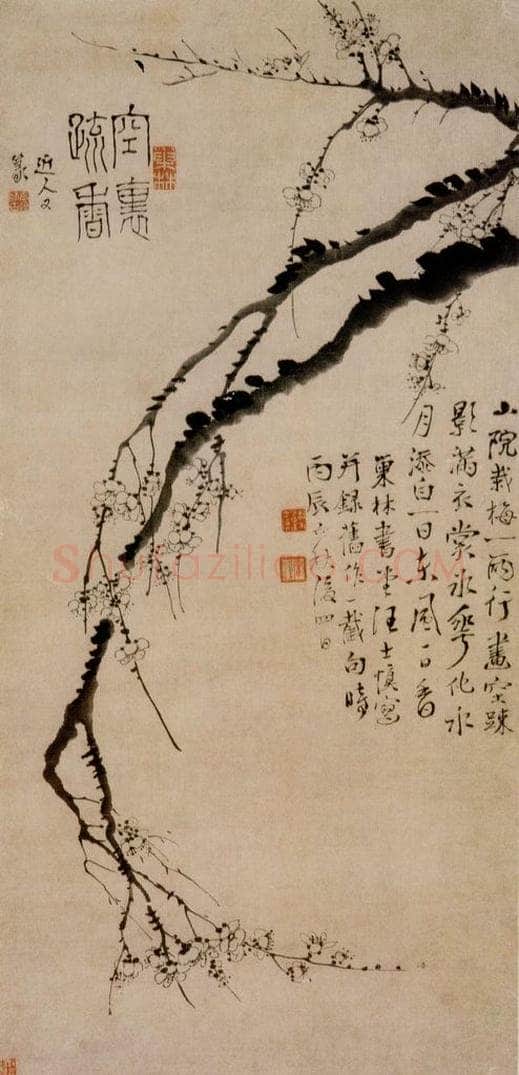 空裏
疏香
近人又
篆
小院栽梅一兩行畫空疎
影滿衣裳冰華化水
月添白一日東風一日香
巢林書堂汪士慎寫
并錄舊作一截句時
丙辰後四日
Shufaziliao.COM